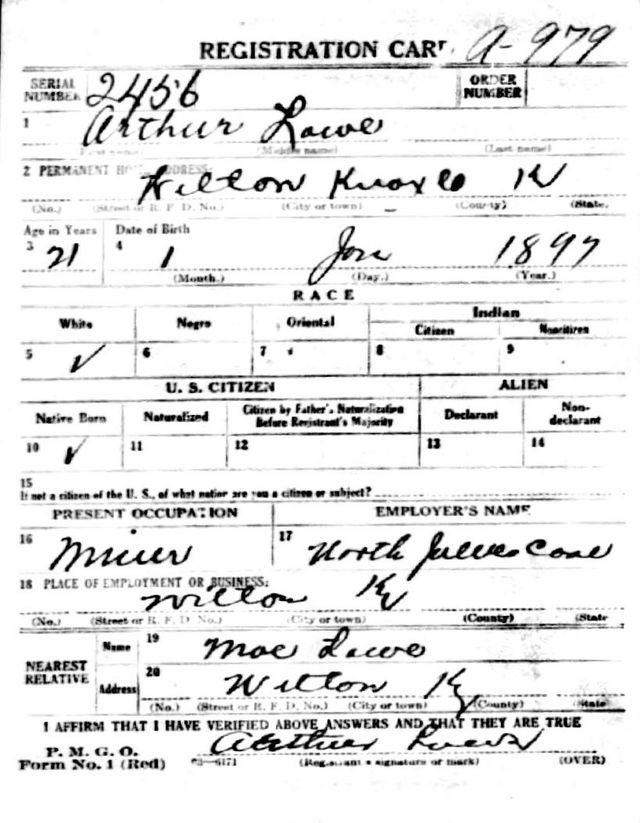 REGISTRATION CARD A-979
SERIAL NUMBER 2456 ORDER NUMBER
1 Arthur Lowe
(First name) (Middle name) (Last name)
2 PERMANENT HOME ADDRESS:
Wilton Knox Co Ky
(No.) (Street or R. F. D. No.) (City or town) (County) (State.
Age in Years Date of Birth
3 21 4 1 Jan 1897
(Month.) (Day.) (Year.)
RACE
White Negro Oriental Indian
Citizen Noncitizen
5 ✓ 6 7 8 9
U. S. CITIZEN ALIEN
Native Born Naturalized Citizen by Father's Naturalization Before Registrant's Majority Declarant Non-declarant
10 ✓ 11 12 13 14
15
If not a citizen of the U. S., of what nation are you a citizen or subject?
PRESENT OCCUPATION EMPLOYER'S NAME
16 Miner 17 North Coal
18 PLACE OF EMPLOYMENT OR BUSINESS:
Wilton Ky
(No.) (Street or R. F. D. No.) (City or town) (County) (State
NEAREST RELATIVE
Name 19 Mae Lowe
Address 20 Wilton Ky
(No.) (Street or R. F. D. No.) (City or town) (County) (State
I AFFIRM THAT I HAVE VERIFIED ABOVE ANSWERS AND THAT THEY ARE TRUE
P. M. G. O.
Form No. 1 (Red) 03—6171 Arthur Lowe
(Registrant's signature or mark) (OVER)